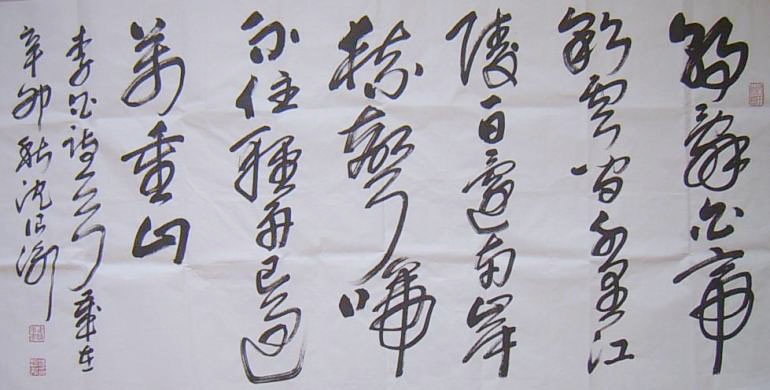 朝辭白帝
彩雲間千里江
陵一日還兩岸
猿聲啼
不住輕舟已過
萬重山
李白詩一首歲在
辛卯秋沈